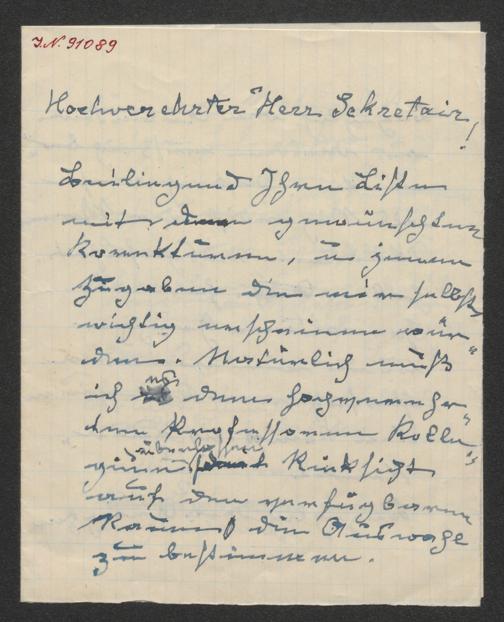 J.N. 91089
Hochverehrter Herr Sekretair!
Beiliegend Ihre Listen
mit den gewünschten
Korrekturen, u jenen
Zugaben die mir selbst
wichtig erscheinen wür
den. Natürlich muß
ich es dem hochverehr
ten Professoren Kolle"
gium überlassen Rücksicht
auf den verfügbaren
Raum die Auswahl
zu bestimmen.